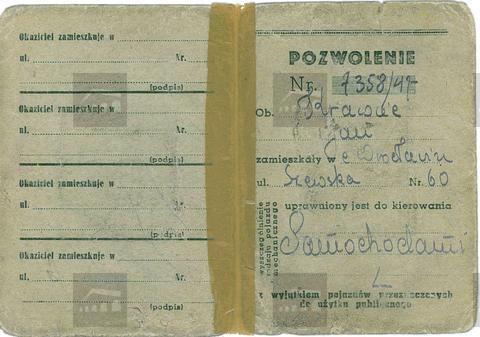 Okaziciel zamieszkuje w
ul. Nr.
(podpis)
Okaziciel zamieszkuje w
ul. Nr.
(podpis)
Okaziciel zamieszkuje w
ul. Nr.
(podpis)
Okaziciel zamieszkuje w
ul. Nr.
(podpis)
POZWOLENIE
Nr. 7358/47
Ob.
Jan
zamieszkały w Wrocławiu
ul. Szewska Nr. 60
uprawniony jest do kierowania
wyszczególnienie
rodzaju pojazdu
mechanicznego
Samochodami
z wyjątkiem pojazdów przeznaczonych
do użytku publicznego